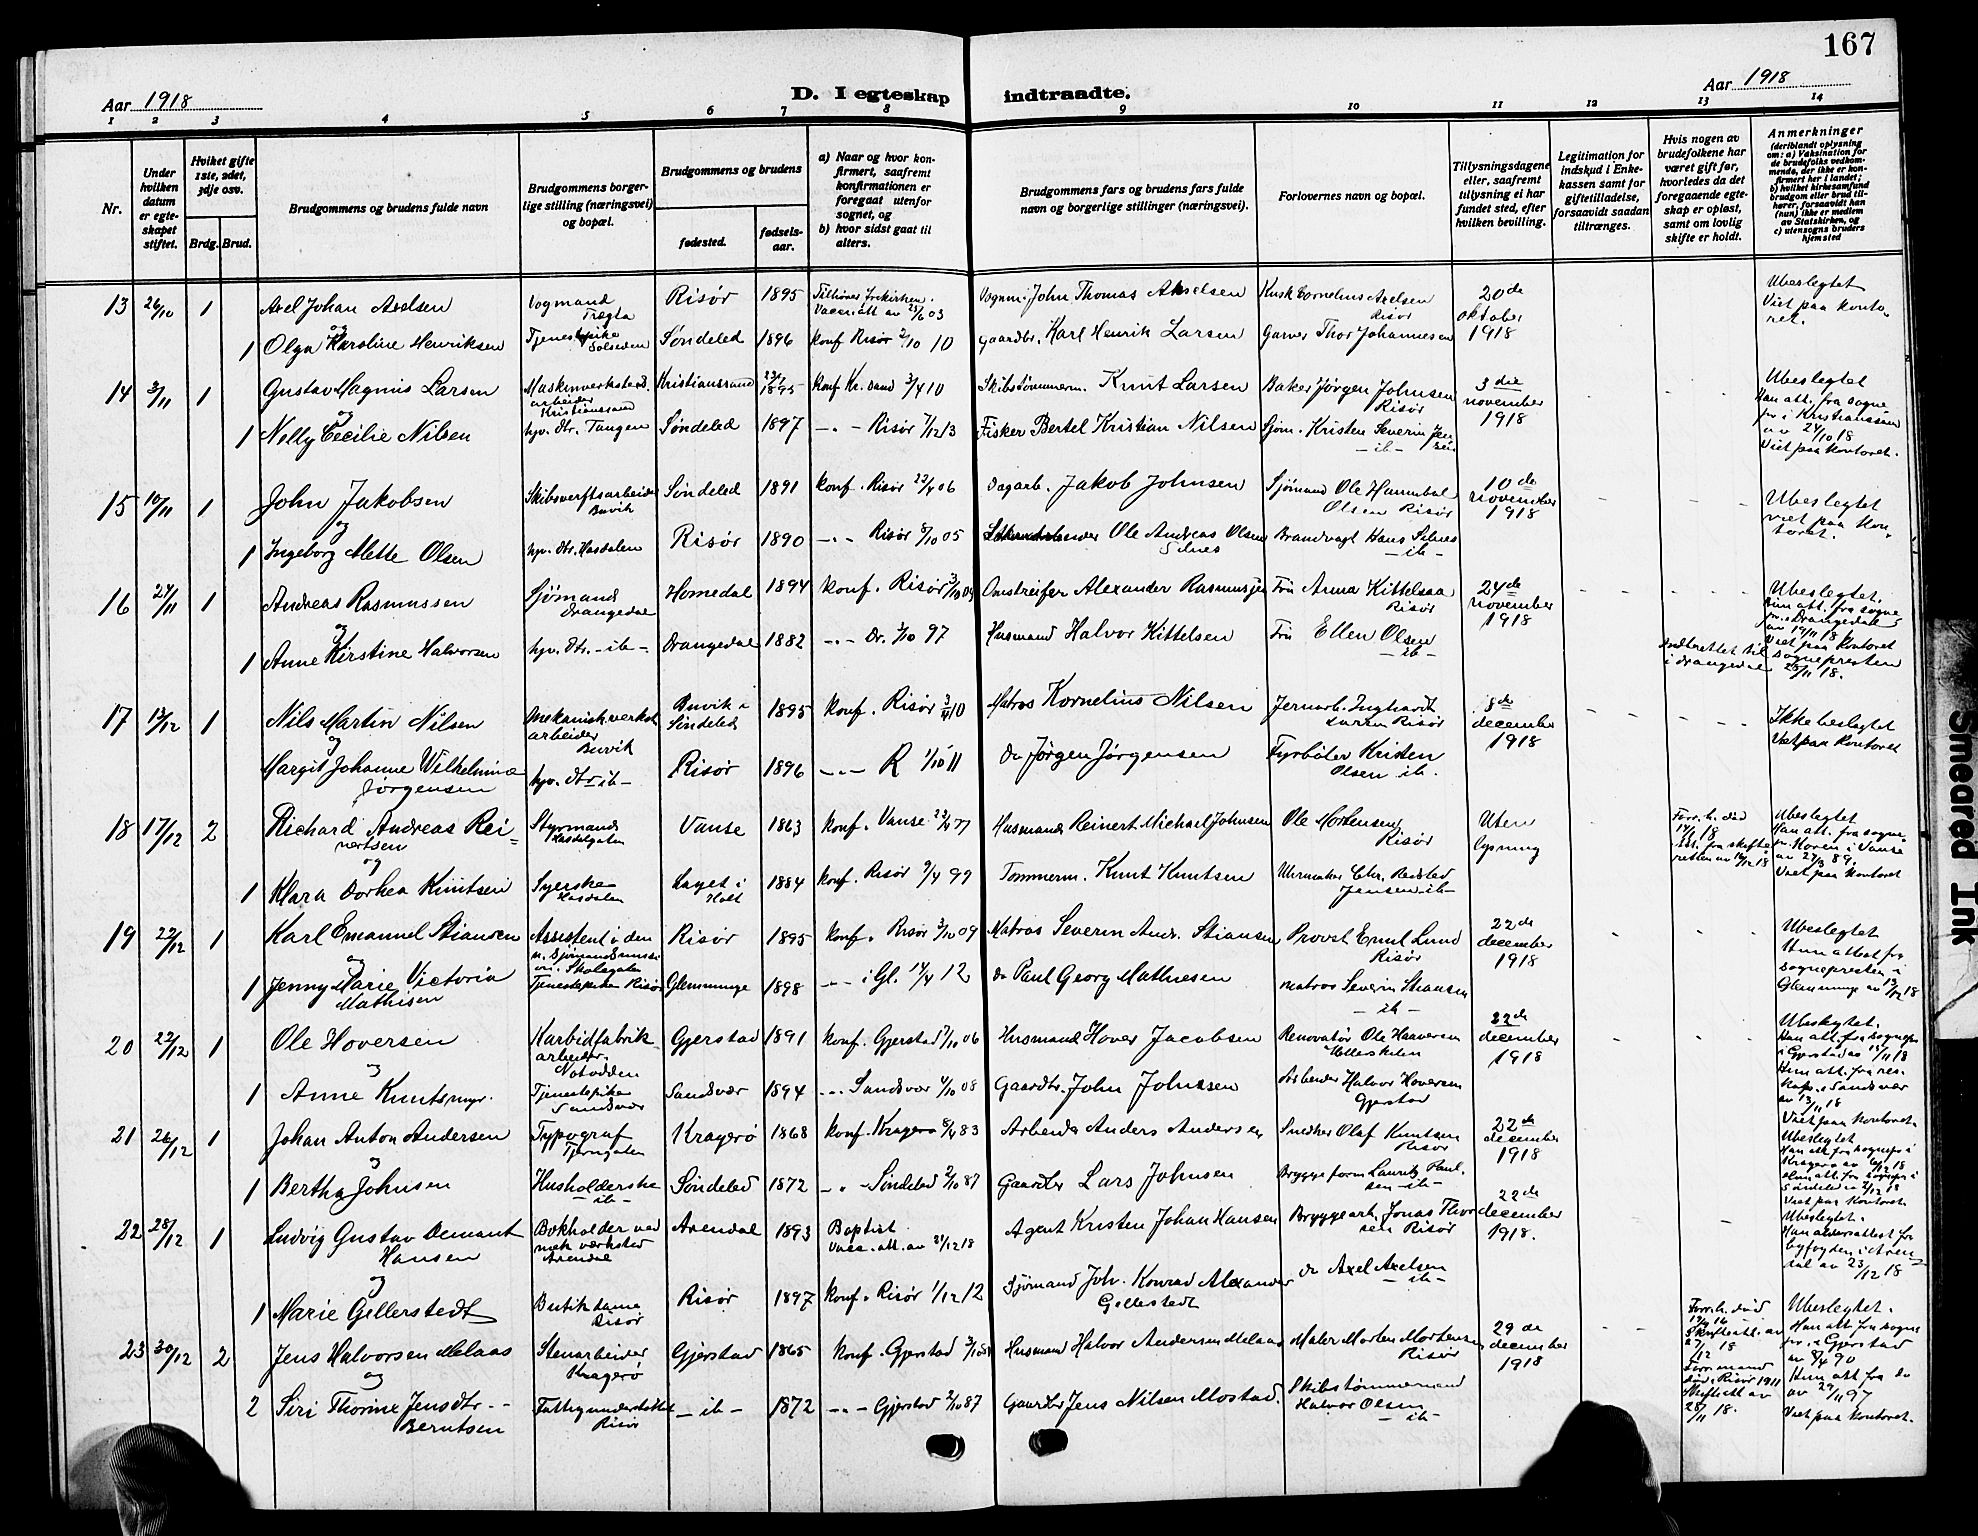 167
Aar 1918
D. I egteskap indtraadte.
Aar 1918
1 2 3 4 5 6 7 8 9 10 11 12 13 14
Nr.
Under hvilken datum er egteskapet stiftet.
Hvilket gifte 1ste, 2det, 3dje osv.
Brdg. Brud.
Brudgommens og brudens fulde navn
Brudgommens borgerlige stilling (næringsvei) og bopæl.
Brudgommens og brudens
fødested.
fødselsaar.
a) Naar og hvor konfirmert, saafremt konfirmationen er foregaat utenfor sognet, og
b) hvor sidst gaat til alters.
Brudgommens fars og brudens fars fulde navn og borgerlige stillinger (næringsvei).
Forlovernes navn og bopæl.
Tillysningsdagene eller, saafremt tillysning ei har fundet sted, efter hvilken bevilling.
Legitimation for indskud i Enkekassen samt for giftetilladelse, forsaavidt saadan tiltrænges.
Hvis nogen av brudefolkene har været gift før, hvorledes da det foregaaende egteskap er opløst, samt om lovlig skifte er holdt.
Anmerkninger (deriblandt oplysning om: a) Vaksination for de brudefolks vedkommende, der ikke er konfirmert her i landet; b) hvilket kirkesamfund brudgom eller brud tilhører, forsaavidt han (hun) ikke er medlem av Statskirken, og c) utensogns bruders hjemsted
13 26/10 1 Axel Johan Axelsen Vognmand Risør 1895 Tilhører frikirken. Vognm. John Thomas Akselsen Kusk Cornelius Axelsen Risør 20de oktober 1918 Ubeslegtet Viet paa kontoret.
og
1 Olga Karoline Henriksen Tjenestepike Søndeled 1896 konf Risør 2/10 10 gaardbr. Karl Henrik Larsen Garver Thor Johannesen
14 3/11 1 Gustav Magnus Larsen Maskinverksteds arbeider Kristianssand Kristianssand 1895 konf Kr.sand 3/4 10 Skibstømmerm. Knut Larsen Baker Jørgen Johnsen Risør 3die november 1918 Ubeslegtet Han att. fra sognepr i Kristianssand av 24/10 18 Viet paa kontoret.
og
1 Nelly Cecilie Nilsen hjv. dtr. Tangen Søndeled 1897 -„- Risør 7/12 13 Fisker Bertel Kristian Nilsen Sjøm. Kristen Severin - ib -
15 10/11 1 John Jakobsen Skibsverftsarbeider Buvik Søndeled 1891 konf. Risør 22/4 06 Dagarb. Jakob Johnsen Sjømand Ole Hannibal Olsen Risør 10de november 1918 Ubeslegtet viet paa kontoret.
og
1 Ingeborg Mette Olsen hjv. dtr. Hasdalen Risør 1890 -„- Risør 8/10 05 Ole Andreas Olsen Silnes Brandvagt Hans Silnes - ib -
16 24/11 1 Andreas Rasmussen Sjømand Drangedal Homedal 1894 konf. Risør Omstreifer Alexander Rasmussen Fru Anna Kittelsaa Risør 24de november 1918 Ubeslegtet. Drangedal av 19/11 18 Viet paa kontoret
og
1 Anne Kirstine Halvorsen hjv. dtr. - ib - Drangedal 1882 -„- Dr. 3/10 97 Husmand Halvor Kittelsen Fru Ellen Olsen - ib - Indberettet til sognepresten i Drangedal 25/11 18.
17 13/12 1 Nils Martin Nilsen Mekanisk verkst. arbeider Buvik Buvik i Søndeled 1895 konf. Risør Matros Kornelius Nilsen Jernarb. Risør 8de december 1918 Ikke beslegtet Viet paa kontoret
og
Margit Johanne Wilhelmine Jørgensen hjv. dtr - ib - Risør 1896 -„- R 1/10 11 do Jørgen Jørgensen Fyrbøter Kristen Olsen ib.
18 17/12 2 Richard Andreas Reinertsen Styrmand Hasdalgaten Vanse 1863 konf. Vanse 22/4 77 Husmand Reinert Michael Johnsen Ole Mortensen Risør Uten lysning Forr. h. død Ubeslegtet Han att. fra sognepr. i Vanse Viet paa kontoret
og
1 Klara Dorthea Knutsen Syerske Hasdalen Laget i Holt 1884 konf. Risør 9/4 99 Tømmerm. Knut Knutsen Uhrmaker Chr. Redsted Jensen ib -
19 22/12 1 Karl Emanuel Stiansen Assistent i den Skolegaten Risør 1895 konf. Risør 3/10 09 Matros Severin Andr. Stiansen Provst Emil Lund Risør 22de december 1918 Ubeslegtet Hun attest fra sognepresten i Glemminge av 13/12 18
og
1 Jenny Marie Victoria Mathisen Tjenestepike Risør Glemminge 1898 -„- i Gl. 14/4 12 do Paul Georg Mathiesen matros Severin Stiansen - ib -
20 22/12 1 Ole Hoversen Karbidfabrikarbeider. Notodden Gjerstad 1891 konf. Gjerstad 17/10 06 Husmand Hover Jacobsen Renovatør Ole Haaversen 22de december 1918 Ubeslegtet. Han att. fra sognepr i Gjerstad av 15/11 18 Hun att. fra res. kap. i Sandsvær av 13/11 18 Viet paa kontoret.
og
1 Anne Knutsmyr. Tjenestepike Sandsvær Sandsvær 1894 -„- Sandsvær 4/10 08 Gaardbr. John Johnsen Arbeider Halvor Hoversen Gjerstad
21 26/12 1 Johan Anton Andersen Typograf Tjerngaten Kragerø 1868 konf. Kragerø 8/4 83 Arbeider Anders Andersen Snedker Olaf Knutsen Risør 22de december 1918 Ubeslegtet Han att fra sognepr i Kragerø av 6/12 18 Hun att. fra sognepr i Søndeled 2/12 18 Viet paa kontoret
og
1 Bertha Johnsen Husholderske - ib - Søndeled 1872 -„- Søndeled 2/10 87 Gaardbr Lars Johnsen Bryggeform Lauritz Paulsen - ib -
22 28/12 1 Ludvig Gustav Demant Hansen Bokholder ved mek verksted Arendal Arendal 1893 Baptist Vacc. att. av 21/12 18 Agent Kristen Johan Hansen Bryggearb. Jonas Thorsen Risør 22de december 1918. Ubeslegtet. Han aldersattest fra byfogden i Arendal av 23/12 18
og
1 Marie Gellerstedt Butikdame Risør Risør 1897 konf. Risør 1/12 12 Sjømand Joh. Konrad Alexander Gellerstedt do Axel Axelsen - ib -
23 30/12 2 Jens Halvorsen Melaas Stenarbeider Kragerø Gjerstad 1865 konf. Gjerstad Husmand Halvor Andersen Melaas Maler Morten Mortensen Risør 29de december 1918 Forr. h. død Skifteatt. av Ubeslegtet. Han att fra sognepr. i Gjerstad av 8/4 90
og
2 Siri Thorine Jensdtr. - Berntsen Fattigunderstøttet Risør - ib - 1872 -„- Gjerstad 2/10 87 Gaardbr Jens Nilsen Mostad. Skibstømmermand Halvor Olsen - ib - Forr. mand død i Risør 1911 Skifteatt av 28/11 18. Hun att fra do av 29/11 97 Viet paa kontoret.
Smeared Ink